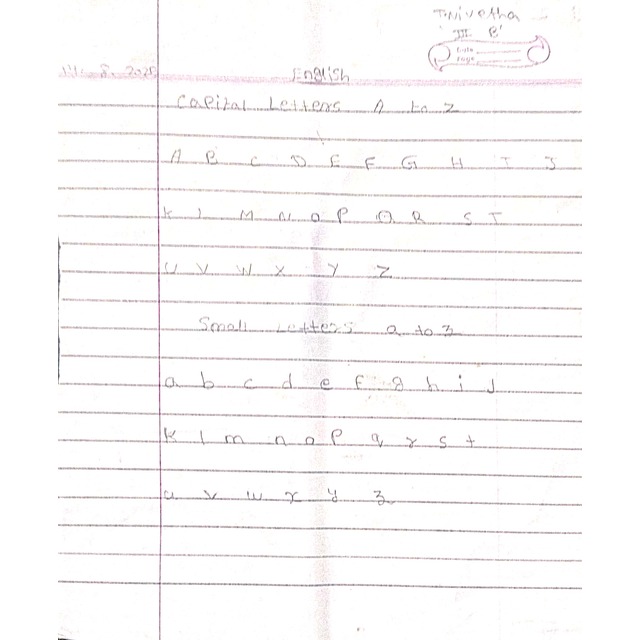 T. Nivetha
III 'B'
Date
Page
14. 8. 2025
English
Capital Letters A to Z
A B C D E F G H I J
K L M N O P Q R S T
U V W X Y Z
Small Letters a to z
a b c d e f g h i j
k l m n o p q r s t
u v w x y z